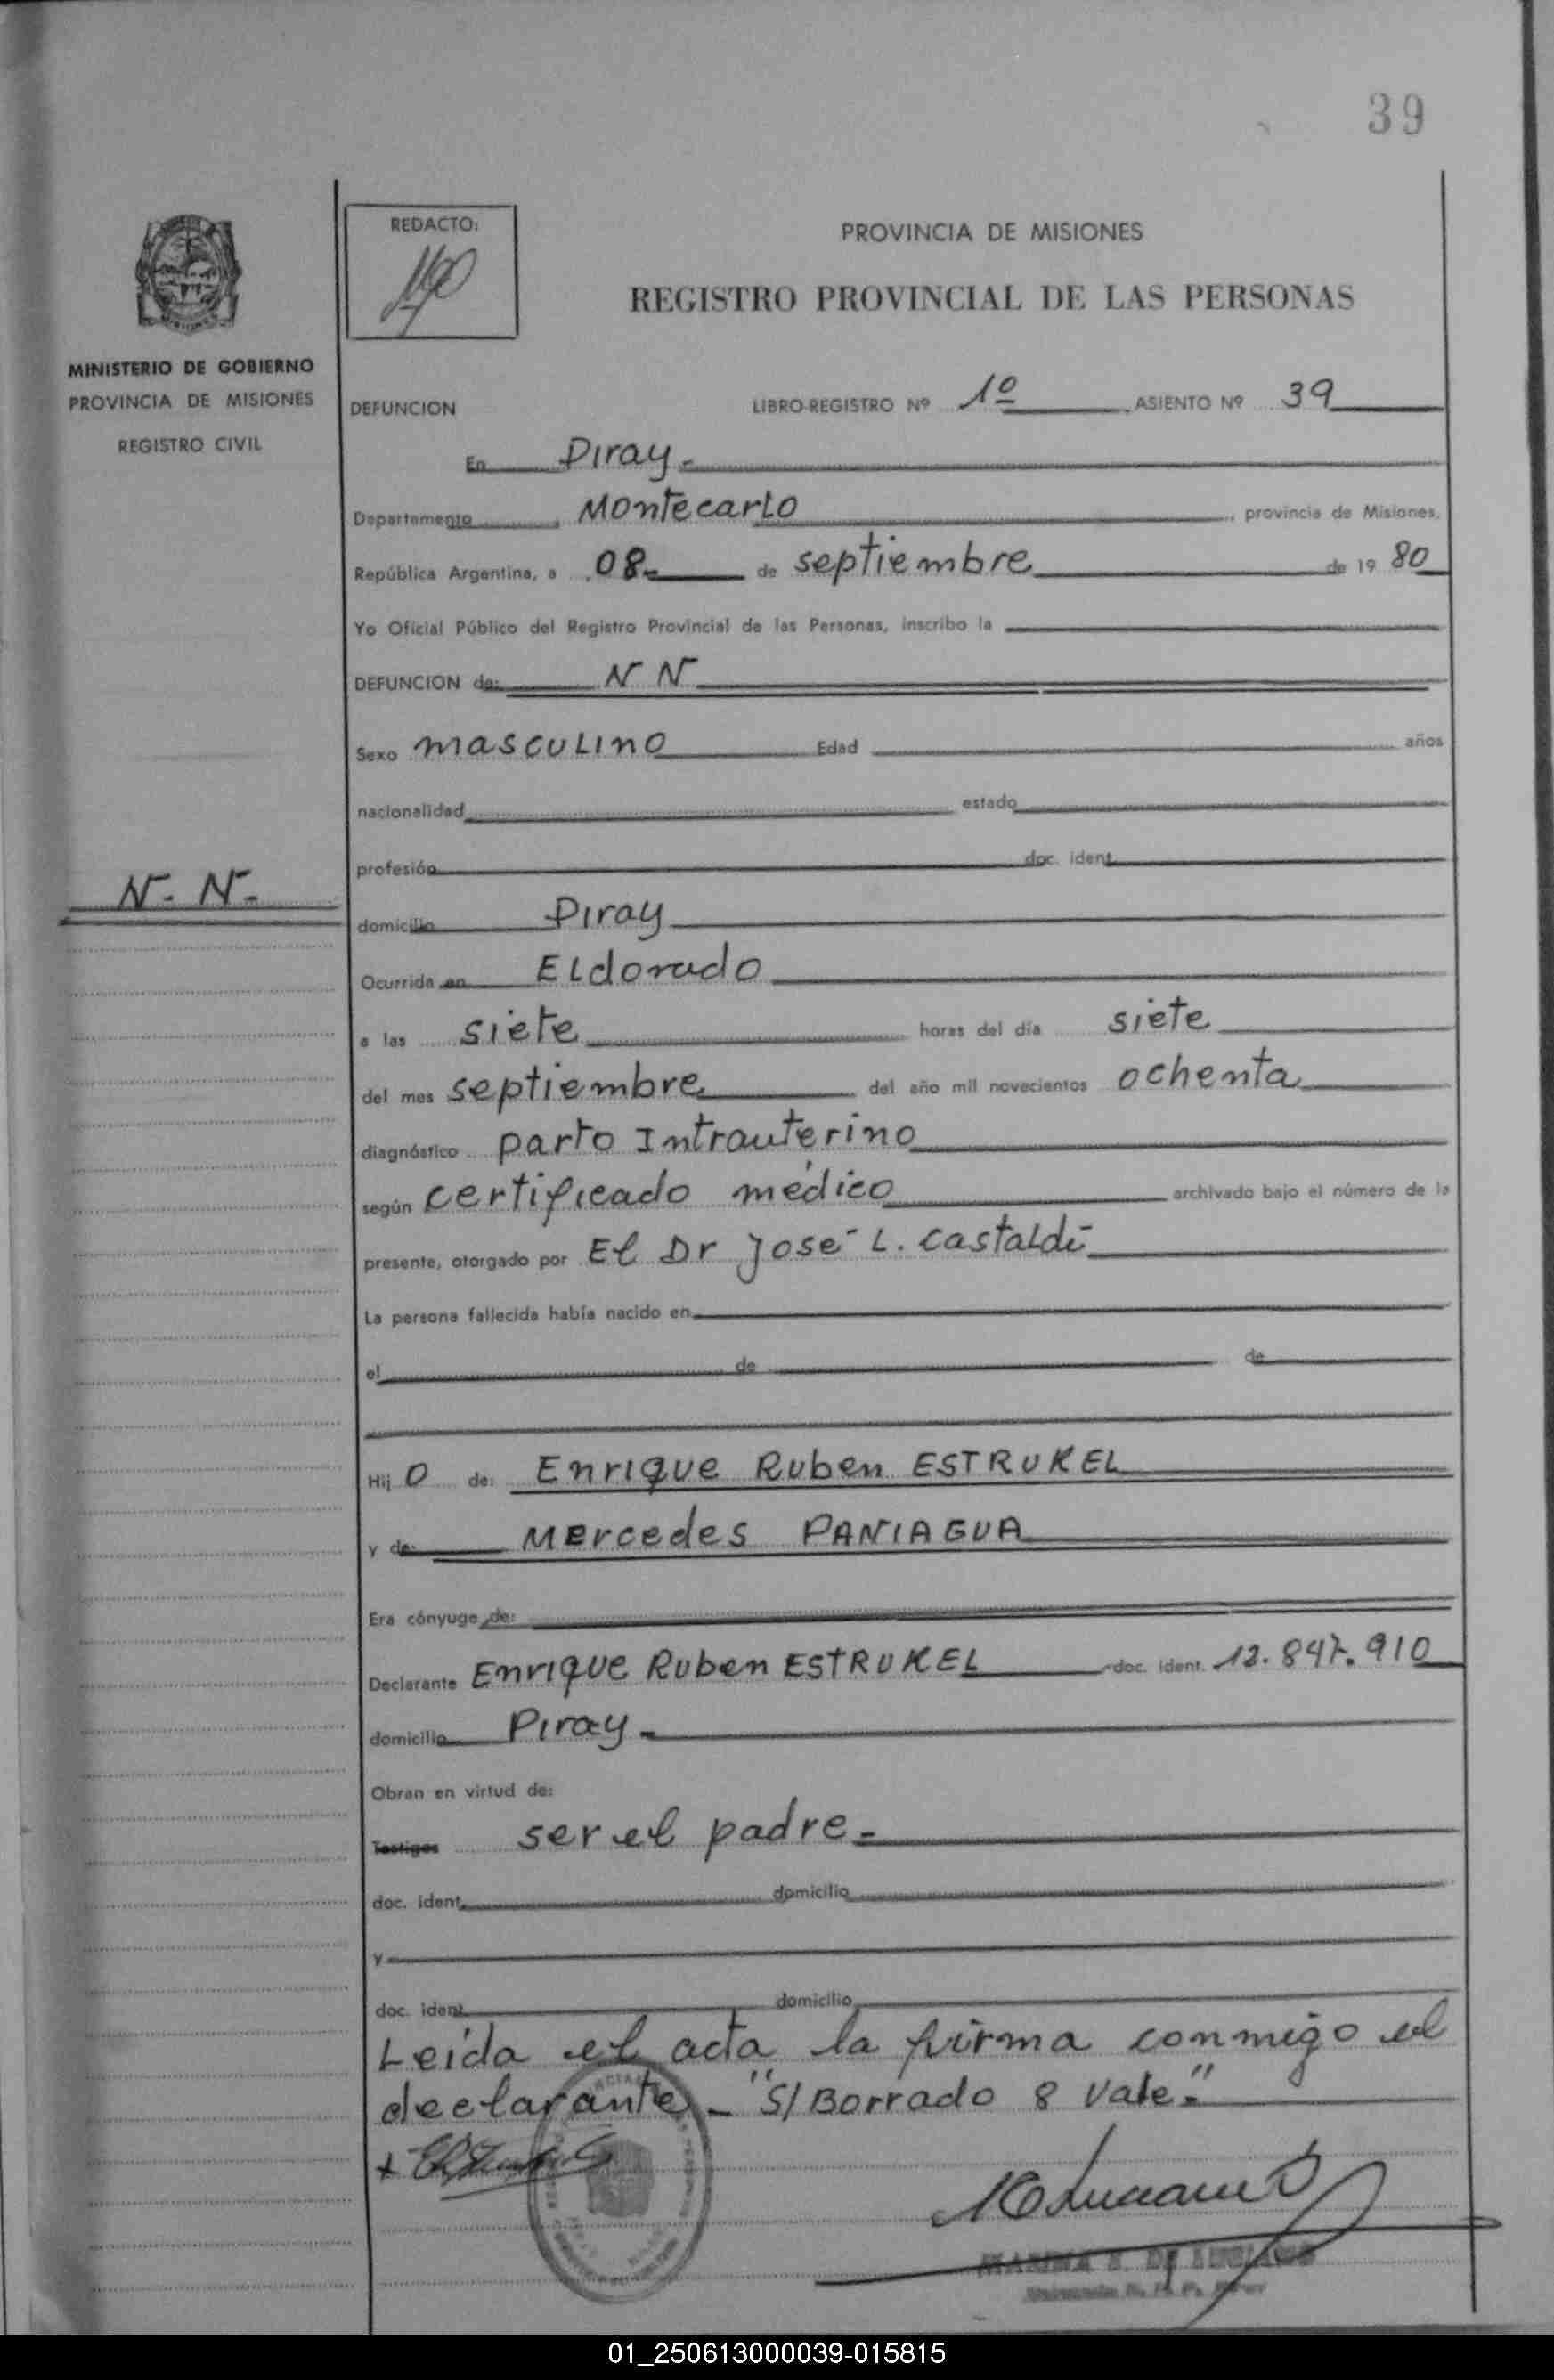 39
REDACTO:
PROVINCIA DE MISIONES
REGISTRO PROVINCIAL DE LAS PERSONAS
MINISTERIO DE GOBIERNO
PROVINCIA DE MISIONES
REGISTRO CIVIL
DEFUNCION LIBRO-REGISTRO Nº 1º ASIENTO Nº 39
En Piray-
Departamento Montecarlo, provincia de Misiones,
República Argentina, a 08- de septiembre de 19 80
Yo Oficial Público del Registro Provincial de las Personas, inscribo la
DEFUNCION de: N N
Sexo masculino Edad años
nacionalidad estado
profesión doc. ident.
N- N-
domicilio Piray
Ocurrida en Eldorado
a las siete horas del día siete
del mes septiembre del año mil novecientos ochenta
diagnóstico parto Intrauterino
según certificado médico archivado bajo el número de la
presente, otorgado por El Dr José L. Castaldi
La persona fallecida había nacido en
el de de
Hij o de: Enrique Ruben ESTRUKEL
y de: Mercedes PANIAGUA
Era cónyuge de:
Declarante Enrique Ruben ESTRUKEL doc. ident. 12.847.910
domicilio Piray-
Obran en virtud de:
Testigos ser el padre-
doc. ident. domicilio
y
doc. ident. domicilio
Leida el acta la firma conmigo el
declarante - "S/Borrado 8 Vale"-
01_250613000039-015815